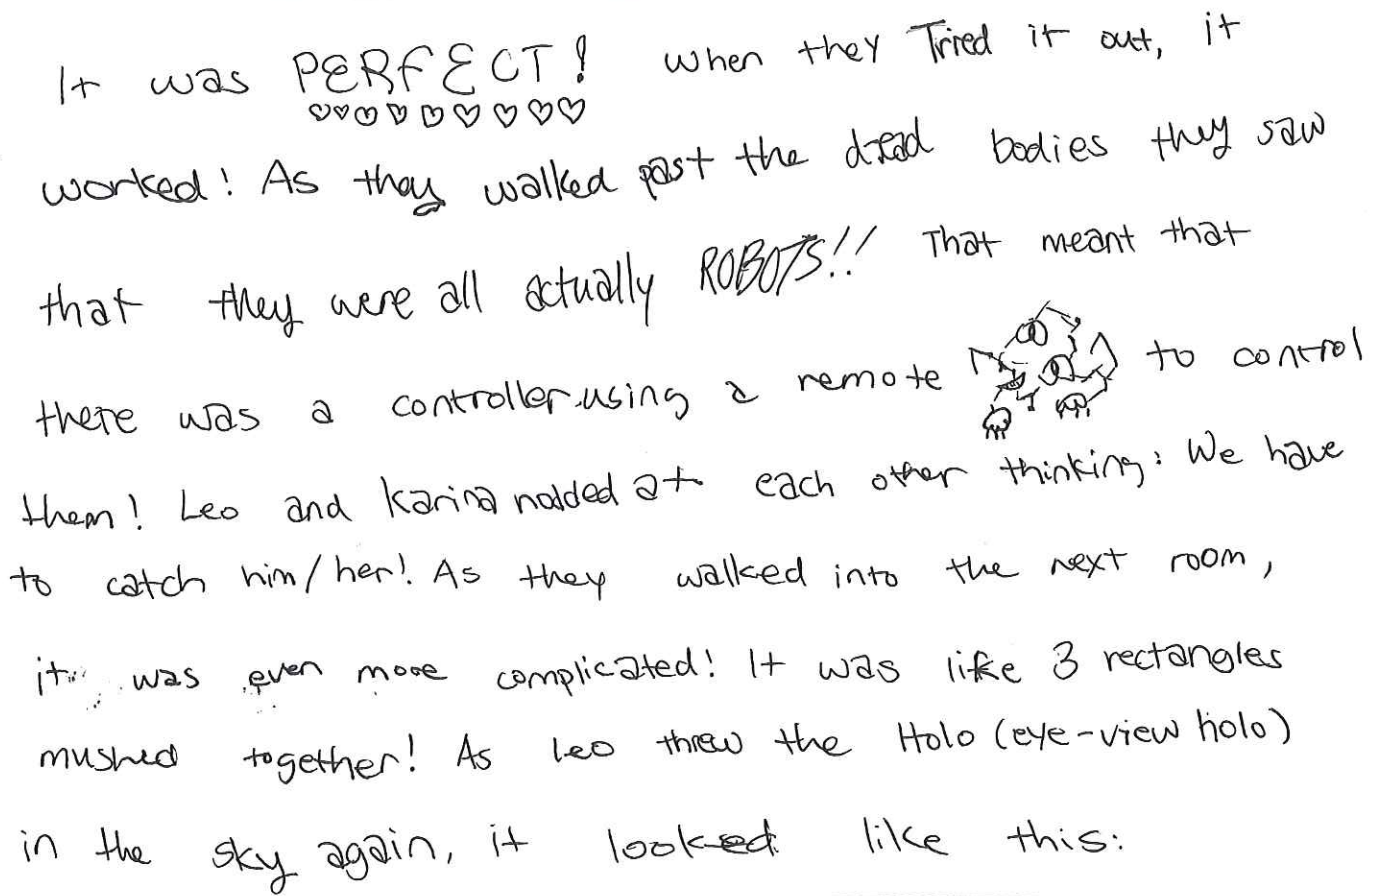 It was PERFECT! When they Tried it out, it
worked! As they walked past the dead bodies they saw
that they were all actually ROBOTS!! That meant that
there was a controller using a remote to control
them! Leo and Karina nodded at each other thinking: We have
to catch him/her! As they walked into the next room,
it was even more complicated! It was like 3 rectangles
mushed together! As Leo threw the Holo (eye-view holo)
in the sky again, it looked like this: